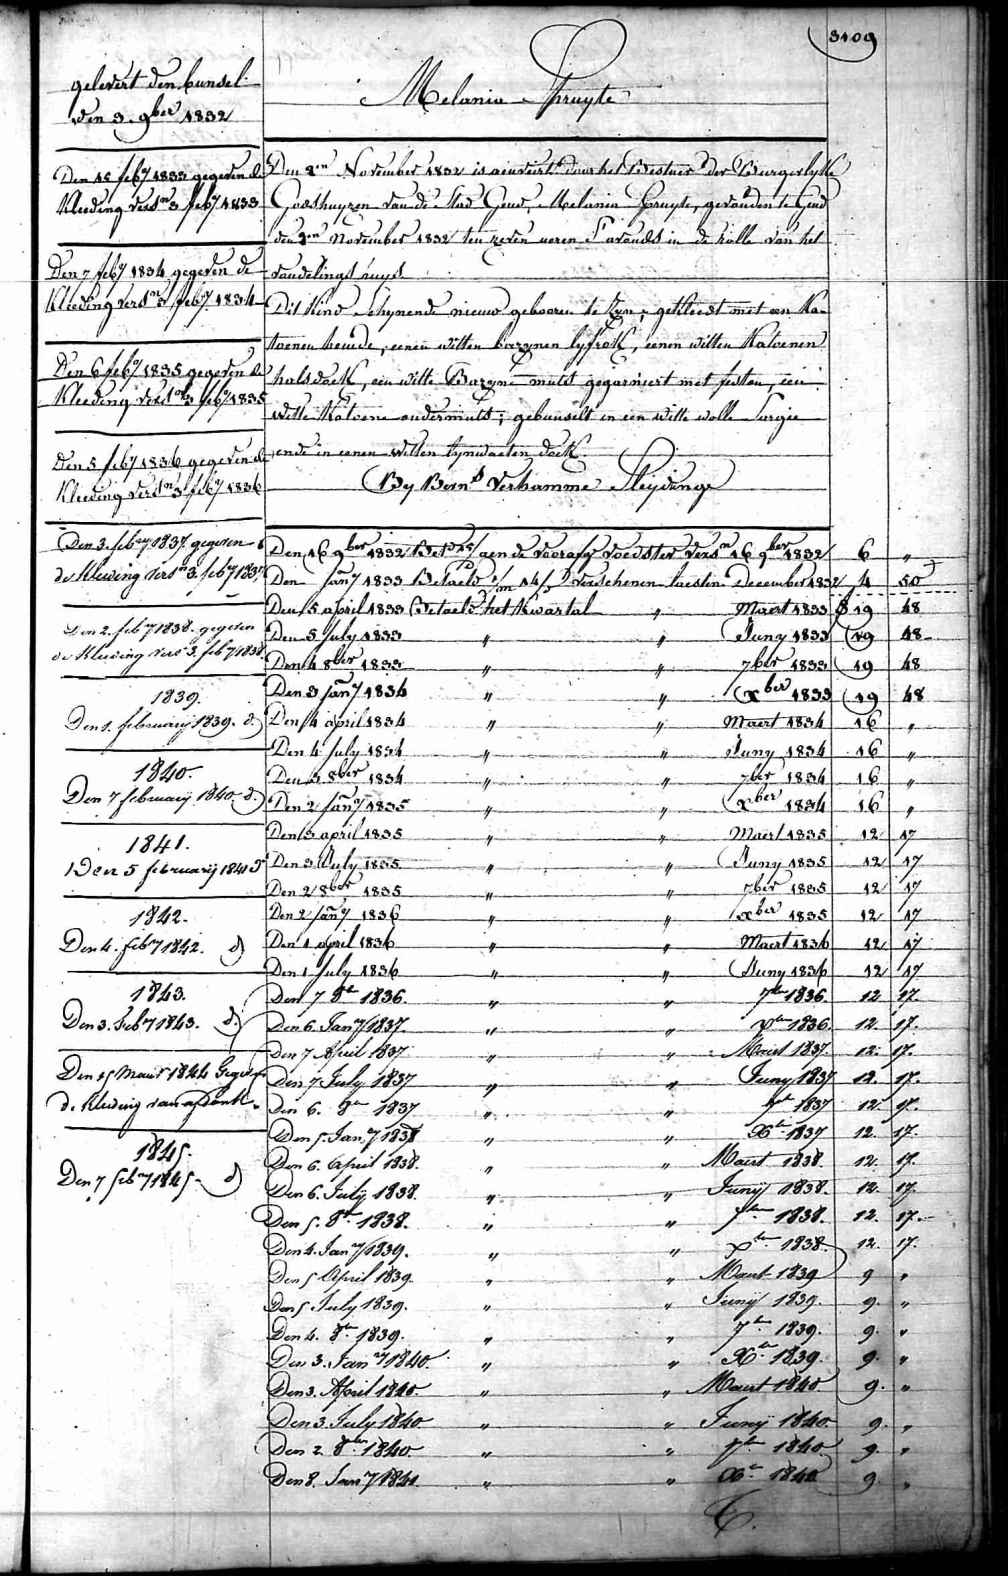 3109
gelevert den bunsel
den 3. 9ber 1832
Den 15 feby 1833 gegeven de
Kleeding versn 3 feby 1833
Den 7 feby 1834 gegeven de
Kleeding versn 3 feby 1834
Den 6 feby 1835 gegeven de
Kleeding versn 3 feby 1835
Den 5 feby 1836 gegeven de
Kleeding versn 3 feby 1836
Den 3. febry 1837 gegeven
de Kleeding versn 3 feby 1837
Den 2. feby 1838. gegeven
de Kleeding vers 3. feby 1838
1839.
Den 1. february 1839. d
1840.
Den 7 februarij 1840. d.
1841.
Den 5 februarij 1841 d
1842.
Den 4. feby 1842. d
1843.
Den 3. Feby 1843. d.
Den 15 Maart 1844 Gegeven
de Kleeding
1845.
Den 7 feby 1845 d
Melania Spruyte
Den 2en November 1832 is aenveirt door het Bestuer der Burgerlyke
Godshuyzen van de Stad Gend, Melania Spruyte, gevonden te Gend
den 2en November 1832 ten zeven ueren S'avonds in de rolle van het
vondelings huys.
Dit Kind Schynende nieuw gebooren te Zyn, gekleedt met een Ka-
toenen hemde, eenen witten bazynen lyfrok, eenen witten Katoenen
halsdoek, een witte Bazyne muts gegarniert met feston, een
witte Katoene ondermuts; gebunselt in een witte wolle Sargie
ende in eenen witten lynwaeten doek.
By Bernd Verhamme Sleydinge
Den 16 9ber 1832 aen de voorafge voedster versn 16 9ber 1832 6 "
Den Jany 1833 Betaeld verschenen laesten December 1832 4 50
Den 5 april 1833 Betaeld het Kwartal " Maert 1833 19 48
Den 5 July 1833 " " Juny 1833 19 48
Den 4 8ber 1833 " " 7ber 1833 19 48
Den 3 Jany 1834 " " xber 1833 19 48
Den 4 april 1834 " " Maert 1834 16 "
Den 4 July 1834 " " Juny 1834 16 "
Den 3 8ber 1834 " " 7ber 1834 16 "
Den 2 Jany 1835 " " xber 1834 16 "
Den 3 april 1835 " " Maert 1835 12 17
Den 3 July 1835 " " Juny 1835 12 17
Den 2 8ber 1835 " " 7ber 1835 12 17
Den 2 Jany 1836 " " xber 1835 12 17
Den 1 april 1836 " " Maert 1836 12 17
Den 1 July 1836 " " Juny 1836 12 17
Den 7 8er 1836. " " 7ber 1836. 12 17.
Den 6. Jany 1837. " " xber 1836. 12. 17.
Den 7 April 1837 " " Maert 1837. 12. 17.
Den 7 July 1837 " " Juny 1837 12. 17.
Den 6. 8er 1837 " " 7er 1837 12. 17.
Den 5. Jany 1838 " " Xer 1837 12. 17.
Den 6. April 1838. " " Maert 1838. 12. 17.
Den 6. July 1838. " " Junij 1838. 12. 17.
Den 5. 8er 1838. " " 7ber 1838. 12. 17.
Den 4. Jany 1839. " " xber 1838. 12. 17.
Den 5 April 1839. " " Maert 1839 9 "
Den 5 July 1839. " " Junij 1839. 9. "
Den 4. 8er 1839. " " 7er 1839. 9. "
Den 3. Jany 1840. " " Xer 1839. 9. "
Den 3. April 1840 " " Maert 1840 9. "
Den 3. July 1840 " " Junij 1840. 9. "
Den 2. 8ber 1840. " " 7er 1840 9. "
Den 8. Jany 1841. " " Xer 1840 9. "